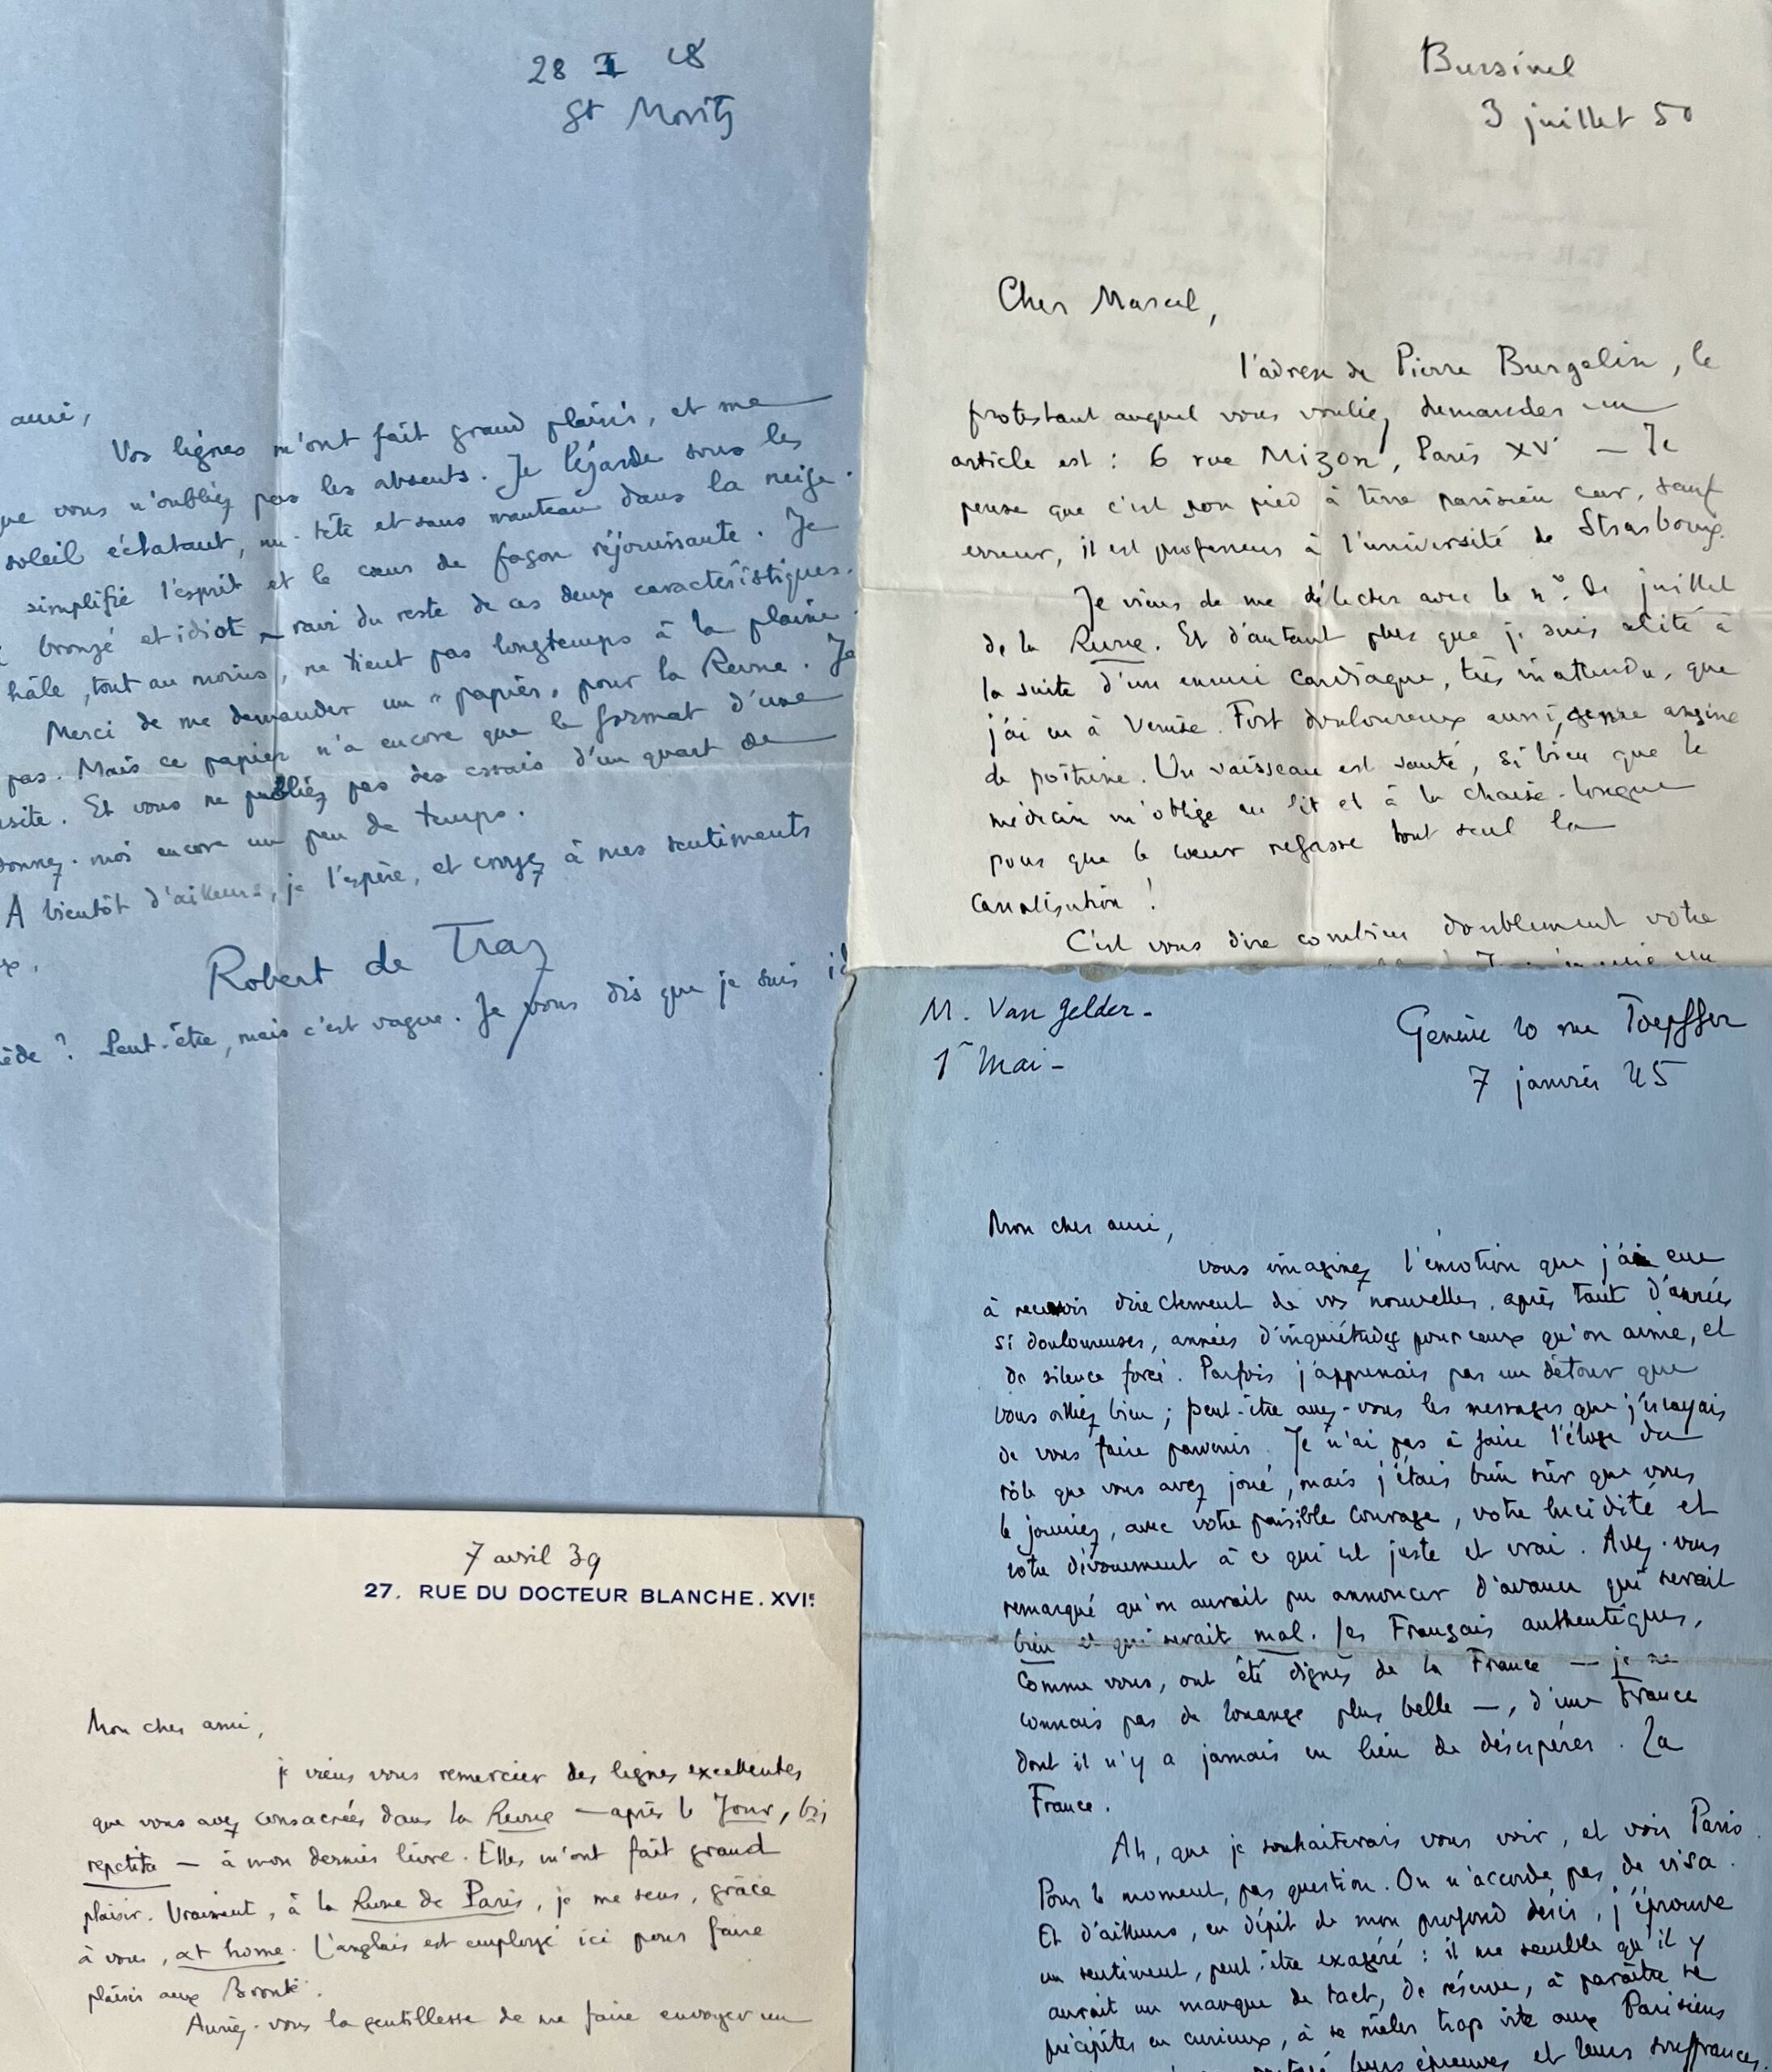 28 II 48
St Moritz
ami,
Vos lignes m'ont fait grand plaisir, et me
que vous n'oubliez pas les absents. Je lézarde sous les
soleil éclatant, nu-tête et sans manteau dans la neige.
simplifie l'esprit et le cœur de façon réjouissante. Je
bronzé et idiot, ravi du reste de ces deux caractéristiques.
hâle, tout au moins, ne tient pas longtemps à la plaine.
Merci de me demander un "papier" pour la Revue. Je
pas. Mais ce papier n'a encore que le format d'une
visite. Et vous ne publiez pas des essais d'un quart de
donnez-moi encore un peu de temps.
A bientôt d'ailleurs, je l'espère, et croyez à mes sentiments
Robert de Traz
? Peut-être, mais c'est vague. Je vous dis que je suis
Bursinel
3 juillet 50
Cher Marcel,
l'adresse de Pierre Burgelin, le
protestant auquel vous vouliez demander un
article est : 6 rue Mizon, Paris XV — Je
pense que c'est son pied à terre parisien car, sauf
erreur, il est professeur à l'université de Strasbourg.
Je viens de me délecter avec le n° de juillet
de la Revue. Et d'autant plus que je suis alité à
la suite d'un ennui cardiaque, très inattendu, que
j'ai eu à Venise. Fort douloureux aussi, genre angine
de poitrine. Un vaisseau est sauté, si bien que le
médecin m'oblige au lit et à la chaise-longue
pour que le cœur refasse tout seul la
canalisation !
C'est vous dire combien doublement votre
M. Van Gelder -
1er Mai -
Genève 10 rue Toepffer
7 janvier 45
Mon cher ami,
vous imaginez l'émotion que j'ai eue
à recevoir directement de vos nouvelles, après tant d'années
si douloureuses, années d'inquiétudes pour ceux qu'on aime, et
de silence forcé. Parfois j'apprenais par un détour que
vous alliez bien ; peut-être avez-vous les messages que j'essayais
de vous faire parvenir. Je n'ai pas à faire l'éloge du
rôle que vous avez joué, mais j'étais bien sûr que vous
le joueriez, avec votre paisible courage, votre lucidité et
votre dévouement à ce qui est juste et vrai. Avez-vous
remarqué qu'on aurait pu annoncer d'avance qui serait
bien et qui serait mal. Les Français authentiques,
comme vous, ont été dignes de la France — je ne
connais pas de louange plus belle —, d'une France
dont il n'y a jamais eu lieu de désespérer. La
France.
Ah, que je souhaiterais vous voir, et voir Paris.
Pour le moment, pas question. On n'accorde pas de visa.
Et d'ailleurs, en dépit de mon profond désir, j'éprouve
un sentiment, peut-être exagéré : il me semble qu'il y
aurait un manque de tact, de réserve, à paraître se
précipiter en curieux, à se mêler trop vite aux Parisiens
leurs épreuves et leurs souffrances.
7 avril 39
27. RUE DU DOCTEUR BLANCHE. XVIE
Mon cher ami,
je viens vous remercier des lignes excellentes
que vous avez consacrées dans la Revue — après le Jour, bis
repetita — à mon dernier livre. Elles m'ont fait grand
plaisir. Vraiment, à la Revue de Paris, je me sens, grâce
à vous, at home. L'anglais est employé ici pour faire
plaisir aux Brontë.
Auriez-vous la gentillesse de me faire envoyer un